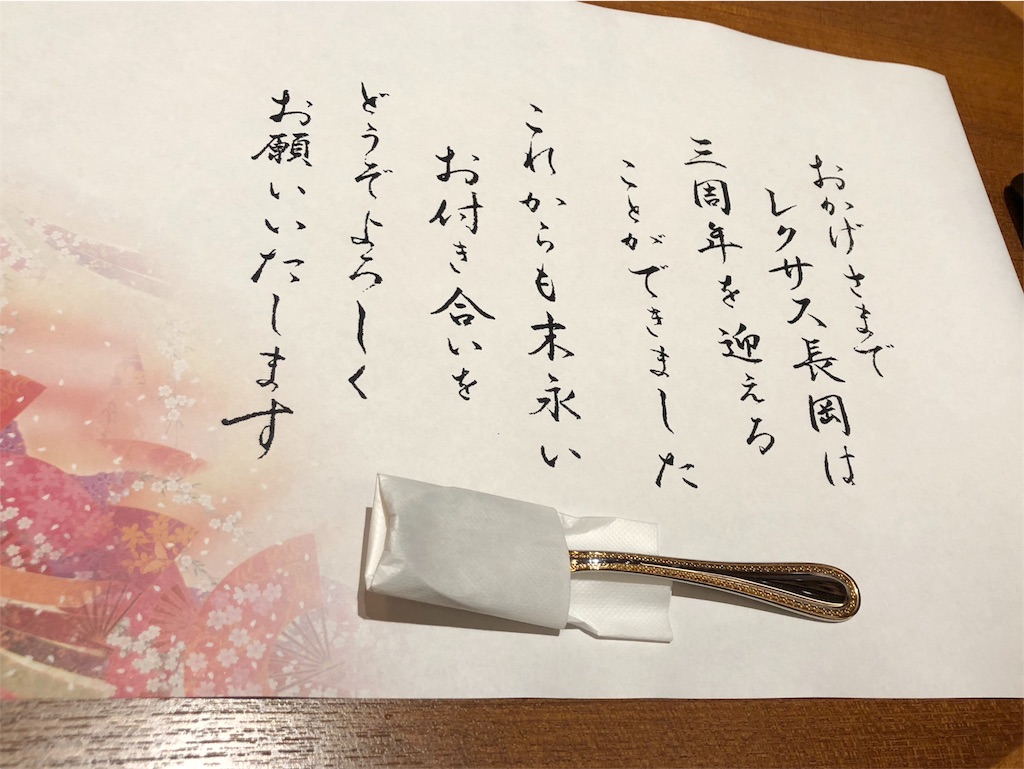 おかげさまで
レクサス長岡は
三周年を迎える
ことができました
これからも末永い
お付き合いを
どうぞよろしく
お願いいたします